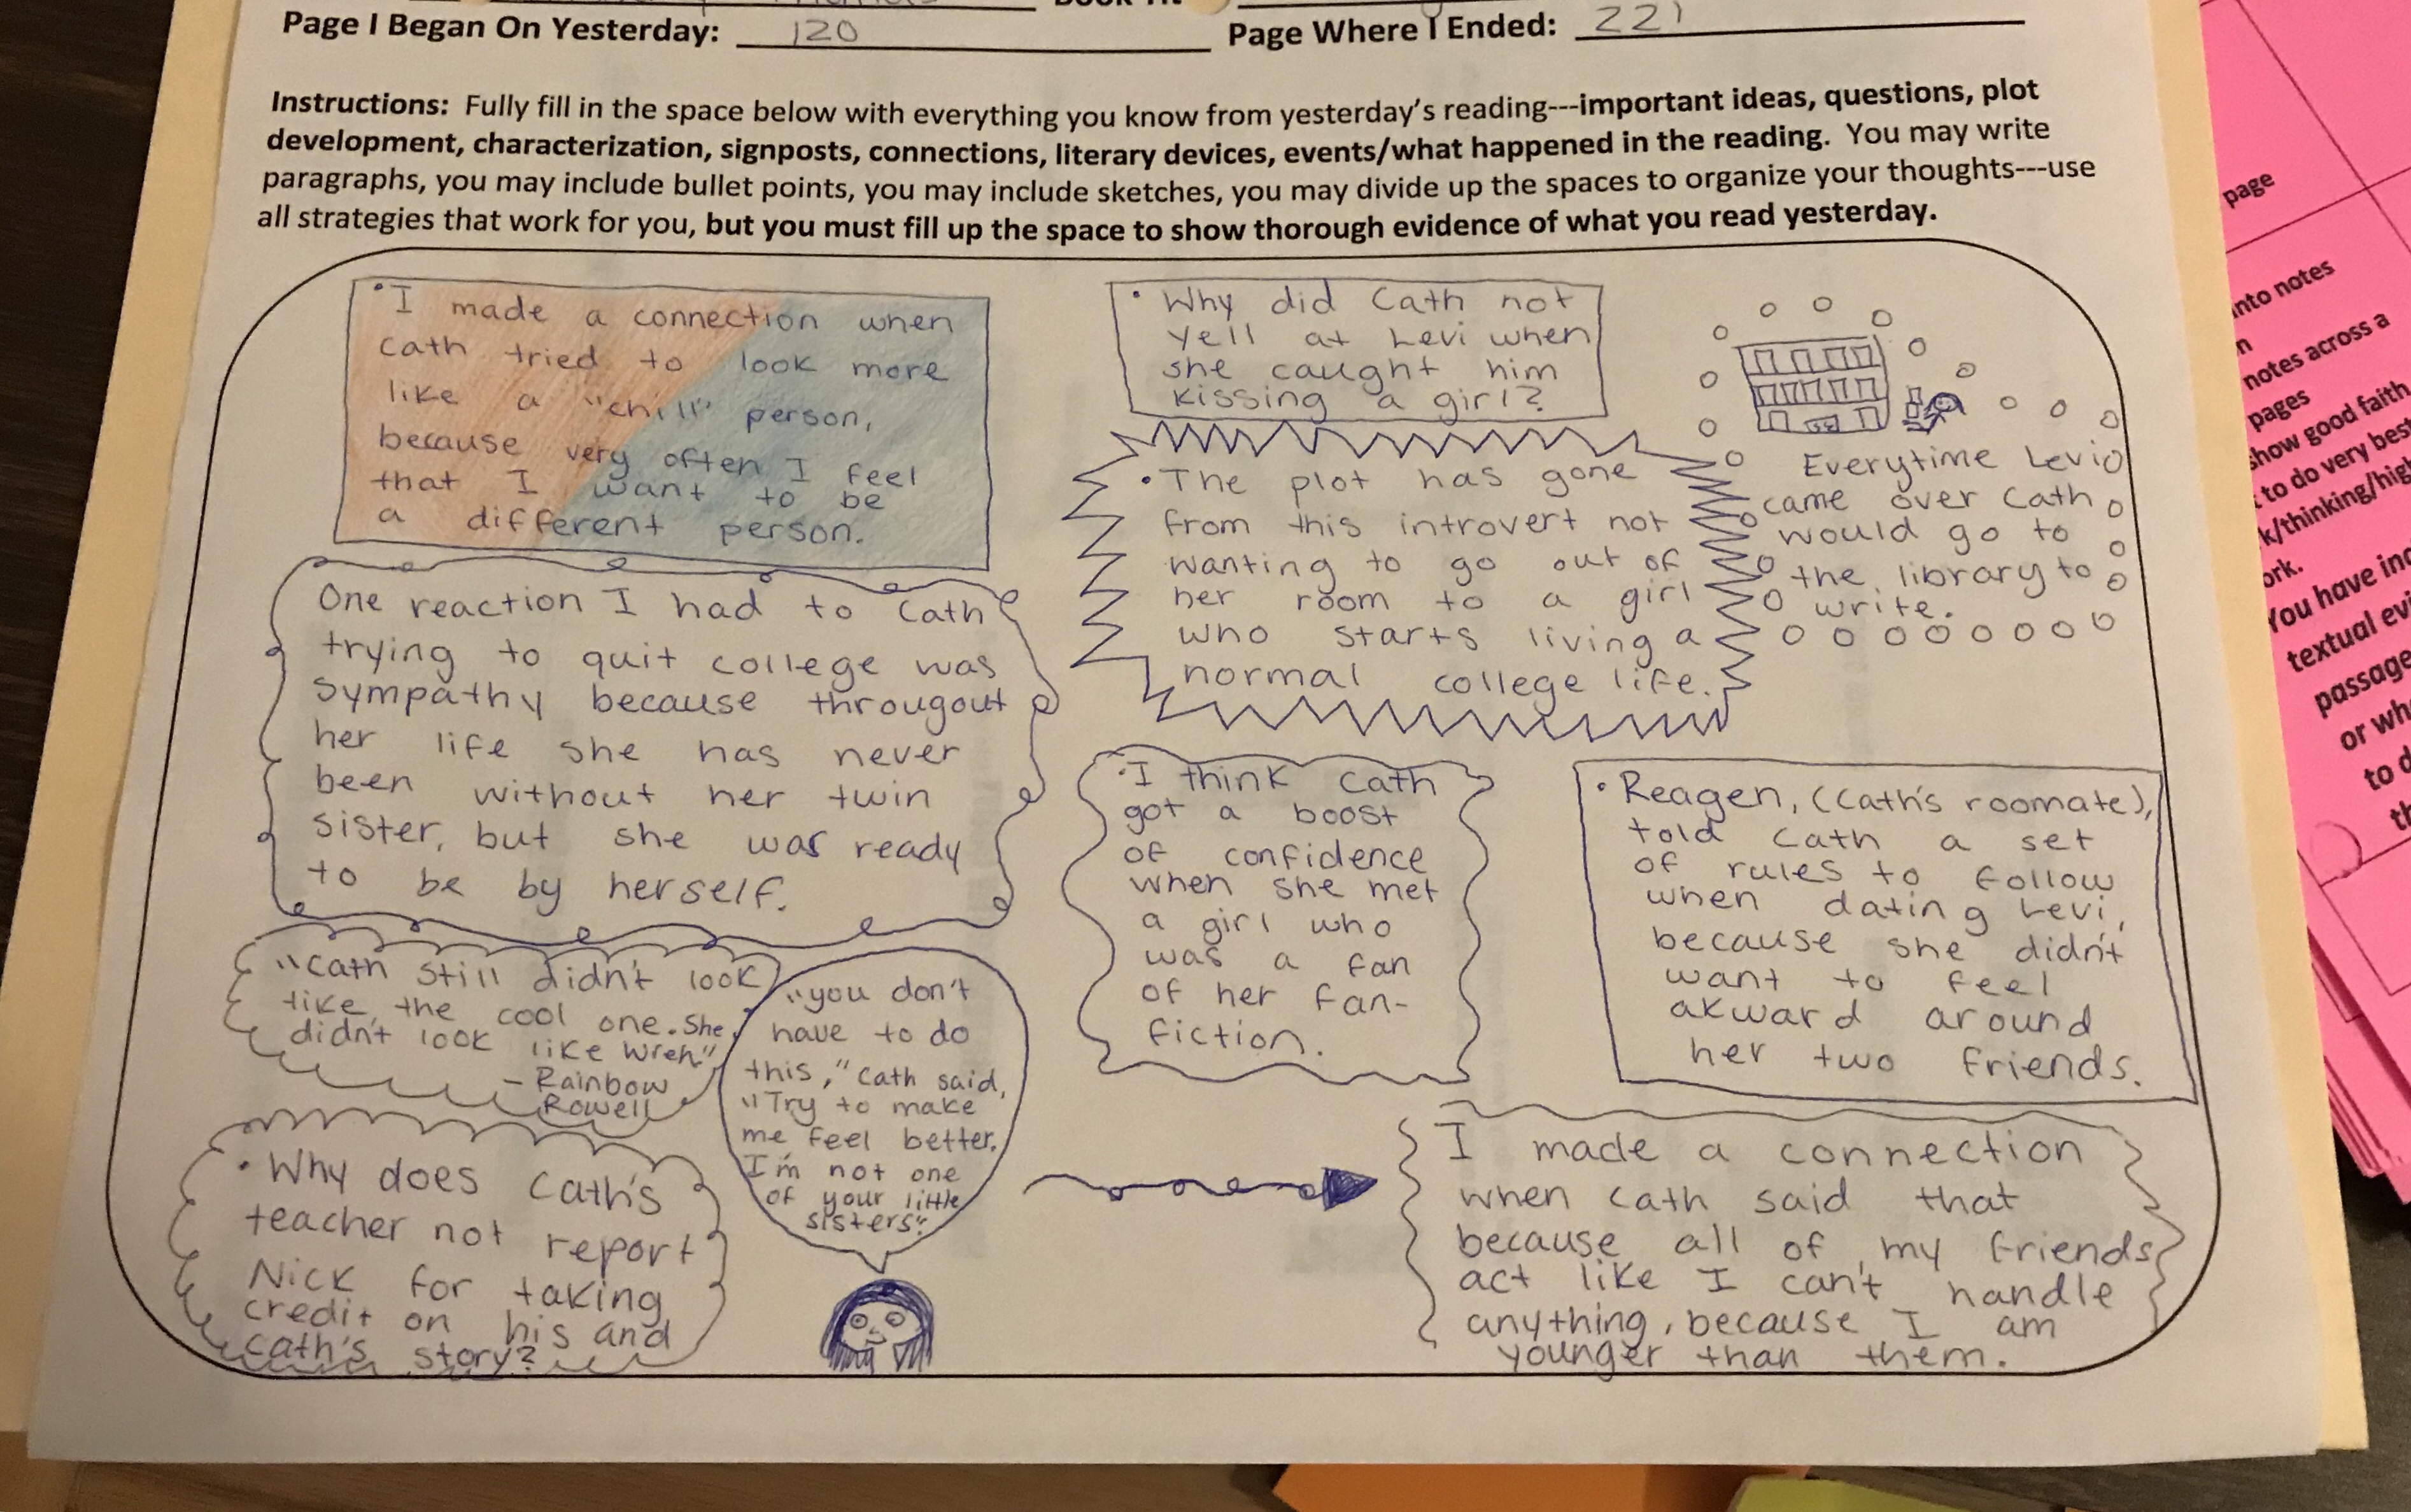 Page I Began On Yesterday: 120
Page Where I Ended: 221
Instructions: Fully fill in the space below with everything you know from yesterday's reading---important ideas, questions, plot
development, characterization, signposts, connections, literary devices, events/what happened in the reading. You may write
paragraphs, you may include bullet points, you may include sketches, you may divide up the spaces to organize your thoughts---use
all strategies that work for you, but you must fill up the space to show thorough evidence of what you read yesterday.
• I made a connection when
Cath tried to look more
like a "chill" person,
because very often I feel
that I want to be
a different person.
• Why did Cath not
yell at Levi when
she caught him
kissing a girl?
Everytime Levi
came over Cath
would go to
the library to
write.
• The plot has gone
from this introvert not
wanting to go out of
her room to a girl
who starts living a
normal college life.
One reaction I had to Cath
trying to quit college was
sympathy because througout
her life she has never
been without her twin
sister, but she was ready
to be by herself.
• I think Cath
got a boost
of confidence
when she met
a girl who
was a fan
of her fan-
fiction.
• Reagen, (Cath's roomate),
told Cath a set
of rules to follow
when dating Levi,
because she didn't
want to feel
akward around
her two friends.
"Cath still didn't look
like the cool one. She
didn't look like Wren"
- Rainbow
Rowell
"you don't
have to do
this," Cath said,
"Try to make
me feel better.
I'm not one
of your little
sisters".
• Why does Cath's
teacher not report
Nick for taking
credit on his and
Cath's story?
I made a connection
when Cath said that
because all of my friends
act like I can't handle
anything, because I am
younger than them.
page
into notes
notes across a
pages
show good faith
to do very best
k/thinking/hig
ork.
You have inc
textual evi
passage
or wh
to d
th